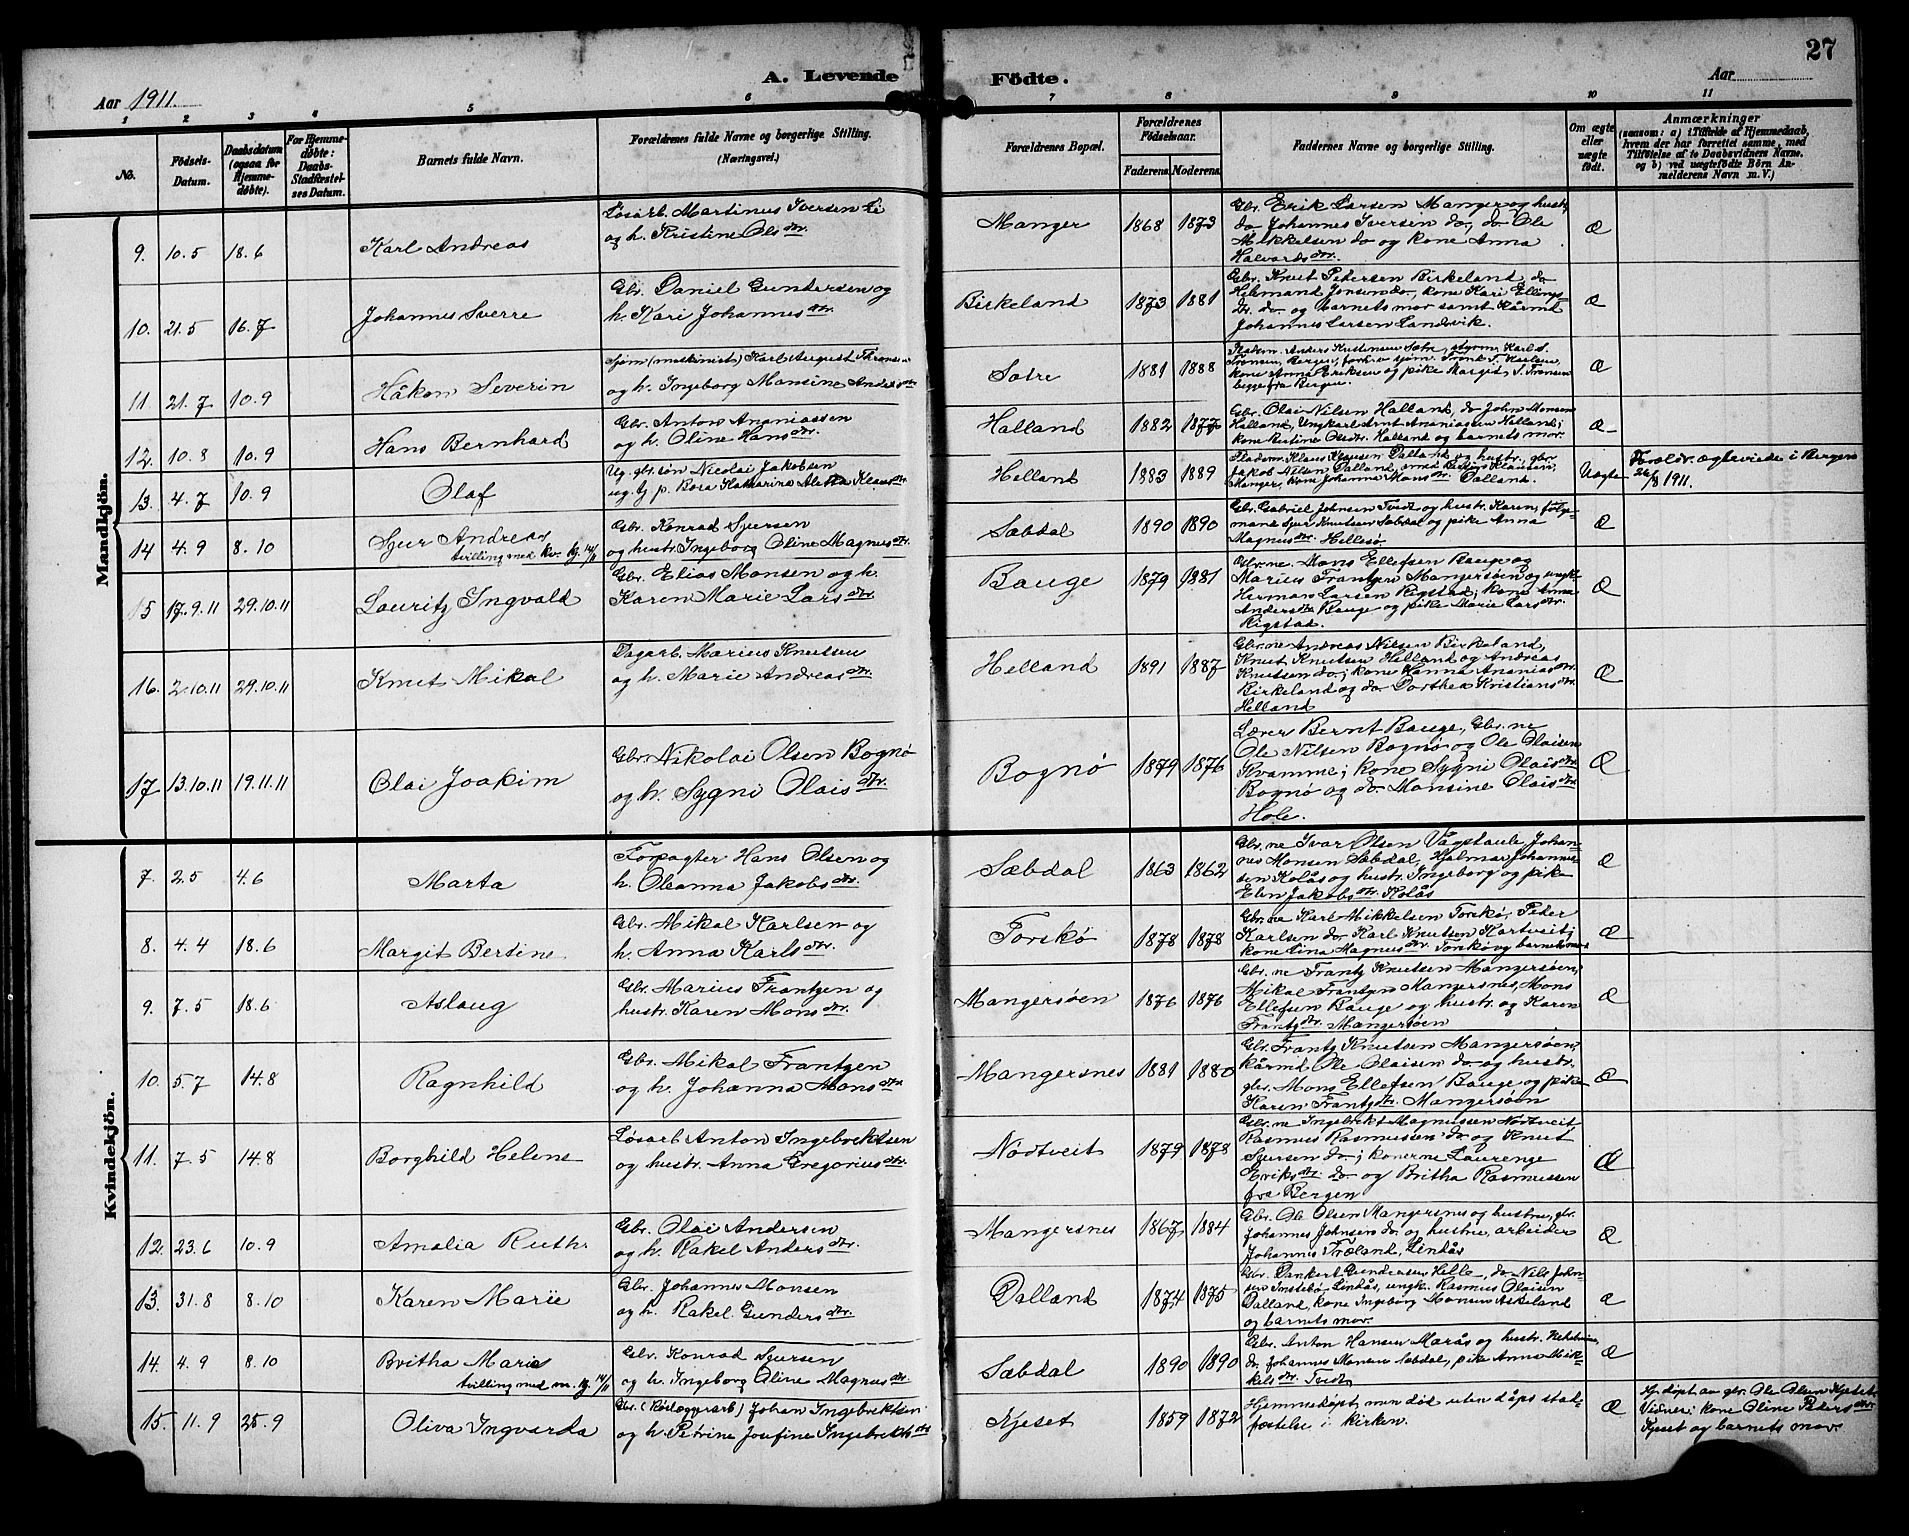 27
A. Levende Födte.
Aar 1911. Aar
1 2 3 4 5 6 7 8 9 10 11
No. Födsels-Datum. Daabsdatum (ogsaa for Hjemmedøbte). For Hjemmedøbte: Daabs-Stadfæstelses Datum. Barnets fulde Navn. Forældrenes fulde Navne og borgerlige Stilling. (Næringsvei.) Forældrenes Bopæl. Forældrenes Födselsaar. Faderens. Moderens. Faddernes Navne og borgerlige Stilling. Om ægte eller uægte födt. Anmærkninger (saasom: a) i Tilfælde af Hjemmedaab, hvem der har forrettet samme, med Tilföielse af to Daabsvidners Navne, og b) ved uægtefödte Börn Anmelderens Navn m. V.)
Mandkjön.
9. 10.5 18.6 Karl Andreas
Løsarb. Martinus Iversen
og h. Kristine Olsdtr.
Manger 1868 1873
Gbr. Erik Larsen Manger og hustr.
do Johannes Iversen do, do Ole
Mikkelsen do og kone Anna
Halvardsdtr.
Æ
10. 21.5 16.7 Johannes Sverre
Gbr. Daniel Gundersen og
h. Kari Johannesdtr.
Birkeland 1873 1881
Gbr. Knut Petersen Birkeland, do
Helemand Jonsen do, kone Kari Ellings-
dtr. do og barnets mor samt Kårmd
Johannes Larsen Landsvik.
Æ
11 21.7 10.9 Håkon Severin
Sjøm (maskinist) Karl August
og h. Ingeborg Monsine Andersdtr.
Sætre 1881 1888
Pladsm. Anders Kristensen Sætre, styrm. Karl S.
Tronsen, Bergen, forh.v. sjøm. Trond T. Karlsen,
kone Anna Eriksen og pike Margit S. Tronsen
begge fra Bergen.
Æ
12. 10.8 10.9 Hans Bernhard
Gbr. Anton Ananiassen
og h. Oline Hansdtr.
Halland 1882 1877
Gbr. Olai Nilsen Halland, do John Monsen
Halland, Ungkarl Arnt Ananiassen Halland;
kone Kristine Olsdtr. Halland og barnets mor.
Æ
13. 4.7 10.9 Olaf
Ug. gbr. søn Nicolai Jakobsen
ug. tj. p. Bora Katharina Aletta Klausdtr
Helland 1883 1889
Pladsm. Klaus Knutsen Dalland og hustr, gbr.
Jakob Nilsen Dalland, Klausen,
Manger, kone Johanna Monsdtr. Dalland.
Uægte
Foreldr. ægteviede i Bergen
26/8 1911.
14 4.9 8.10 Sjur Andreas
tvilling med kv. kj. 14/11
Gbr. Konrad Sjursen
og hustr. Ingeborg Oline Magnusdtr.
Sæbdal 1890 1890
Gbr. Gabriel Johnsen Tvedt og hustr. Karen, følge-
mand Sjur Knutsen Sæbdal og pike Anna
Magnusdtr. Hellesø.
Æ
15 17.9.11 29.10.11 Lauritz Ingvald
Gbr. Elias Monsen og h.
Karen Marie Larsdtr.
Bauge 1879 1881
Gbr.ne. Mons Ellefsen Bauge og
Marius Frantzen Mangersøen og ungk.
Herman Larsen Rigstad; kone Anna
Andersdtr Bauge og pike Marie Larsdtr.
Rigstad.
Æ
16. 2.10.11 29.10.11 Knut Mikal
Dagarb. Marius Knutsen
og h. Marie Andreasdtr.
Helland 1891 1887
Gbr.ne Andreas Nilsen Birkeland,
Knut Knutsen Helland og Andreas
Knutsen do; kone Hanna Ananiasdtr.
Birkeland og do Dorthea Kristiansdtr.
Helland
Æ
17 13.10.11 19.11.11 Olai Joakim
Gbr. Nikolai Olsen Bognø
og h. Sygni Olaisdtr.
Bognø 1879 1876
Lærer Bernt Bauge, Gbr. ne
Ole Nilsen Bognø og Ole Olaisen
Kvamme; kone Sygni Olaisdtr.
Bognø og do. Monsine Olaisdtr.
Hole.
Æ
Kvindekjön.
7. 2.5 4.6 Marta
Forpagter Hans Olsen og
h. Oleanna Jakobsdtr.
Sæbdal 1863 1862
Gbr.ne Ivar Olsen Vågstaule, Johan-
nes Monsen Sæbdal, Hjalmar Johannes-
sen Kolås og hustr. Ingeborg og pike
Elen Jakobsdtr. Kolås
Æ
8. 4.4 18.6 Margit Bertine
Gbr. Mikal Karlsen og
h. Anna Karlsdtr.
Torskø 1878 1878
Gbr.ne Karl Mikkelsen Torskø, Peder
Karlsen do. Karl Knutsen Hartveit;
kone Lina Magnusdtr. Torskø og barnets mor
Æ
9. 7.5 18.6 Aslaug
Gbr. Marius Frantzen og
hustr. Karen Monsdtr.
Mangersøen 1876 1876
Gbr. ne Frantz Knutsen Mangersøen;
Mikal Frantzen Mangersnes, Mons
Ellefsen Bauge og hustr. og Karen
Frantzdtr. Mangersøen
Æ
10. 5.7 14.8 Ragnhild
Gbr. Mikal Frantzen
og h. Johanna Monsdtr
Mangersnes 1881 1880
Gbr. Frantz Knutsen Mangersøen,
kårmd Ole Olaisen do og hustr.
gbr. Mons Ellefsen Bauge og pike
Karen Frantzdtr. Mangersøen
Æ
11. 7.5 14.8 Borghild Helene
Løsarb Anton Ingebrektsen
og hustr. Anna Gregoriusdtr.
Nødtveit 1879 1878
Gbr.ne Ingebrikt Magnussen Nødtveit
Rasmus Rasmussen do og Knut
Sjursen do; konerne Laurenze
Eriksdtr. do og Britha Rasmussen
fra Bergen
Æ
12. 23.6 10.9 Amalia Ruth
Gbr. Olai Andersen
og h. Rakel Andersdtr.
Mangersnes 1867 1884
Gbr. Ole Olsen Mangersnes og hustru, gbr.
Johannes Johnsen do og hustru, arbeider
Johannes Træland, Lindås
Æ
13. 31.8 8.10 Karen Marie
Gbr. Johannes Monsen
og h. Rakel Gundersdtr.
Dalland 1874 1875
Gbr. Dankert Gundersen Hille, do Nils John-
sen Instebø, Lindås, ungk. Rasmus Olaisen
Dalland, kone Ingeborg Monsen Askeland
og barnets mor.
Æ
14. 4.9 8.10 Britha Marie
tvilling med m. kj. 14/11
Gbr. Konrad Sjursen
og h. Ingeborg Oline Magnusdtr
Sæbdal 1890 1890
Gbr. Anton Hansen Marås og hustr.
gbr. Johannes Monsen Sæbdal, pike Anna Mik-
kelsdtr. Tvedt.
Æ
15. 11.9 25.9 Oliva Ingvarda
Gbr. (Rørlæggerarb) Johan Ingebrektsen
og h. Petrine Josefine Ingebrektsdtr
Kjeset 1859 1872
Hjemmedøpt, men død uten dåps stad-
festelse i kirken.
Æ
Hj. døpt av gbr. Ole Olsen Kjeset.
Vidner: kone Oline Pedersdtr.
Kjeset og barnets mor.